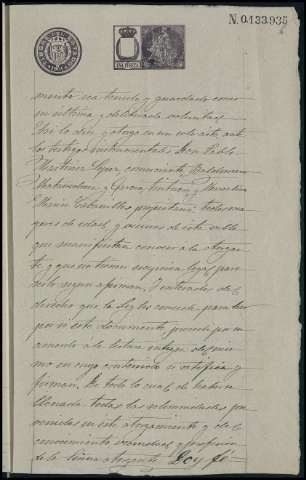 N.0.133.935
UNA PESETA
mento sea tenido y guardado como
su última y deliberada voluntad.
Así lo dice y otorga en un solo acto ante
los testigos instrumentales Don Pablo
Martínez López, comerciante, Baldomero
y García, y
Marín propietario todos mayo
res de edad, y vecinos de esta villa
que manifiestan conocer a la otorgan
te y que no tienen excepción legal para
serlo segun afirman. Y enterados del
derecho que la Ley les concede para leer
por sí este documento, procedí por su
acuerdo a la lectura íntegra del mismo
en cuyo contenido se ratifica y
firman. De todo lo cual, de haberse
llenado todas las solemnidades pre
venidas en este otorgamiento y del
conocimiento vecindad y profesión
de la Señora otorgante Doy fé=